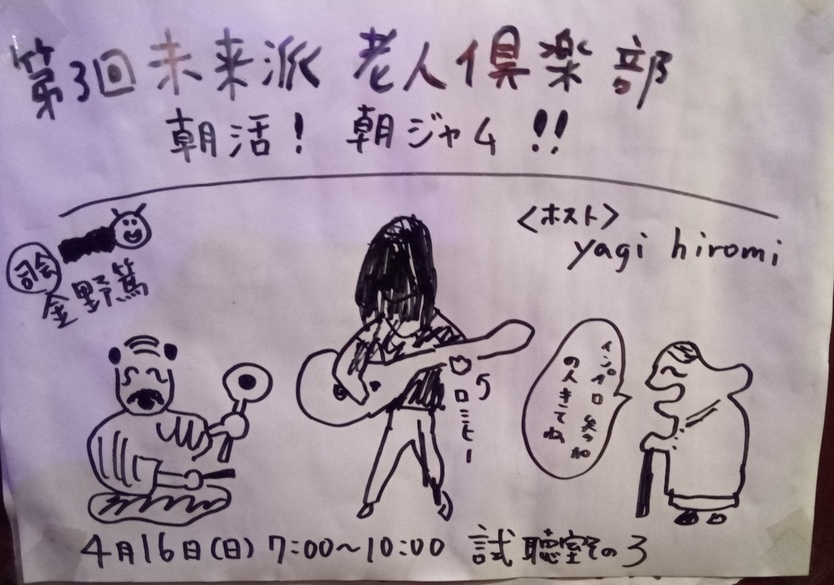 第3回未来派 老人倶楽部
朝活! 朝ジャム!!
<ホスト>
yagi hiromi
司会
金野篤
ロミヒー
インプロ
の人きてね
4月16日(日) 7:00~10:00 試聴室その3